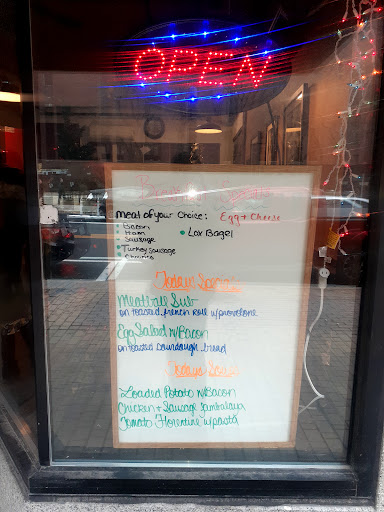 OPEN
Meat of your Choice: Egg + Cheese
Bacon
Ham
Sausage
• Lox Bagel
Turkey Sausage
Today's Specials
Meatball Sub
on toasted french roll w/provolone
Egg Salad w/Bacon
on toasted sourdough bread
Todays Soups
Loaded Potato w/Bacon
Chicken + Sausage Jambalaya
Tomato Florentine w/pasta